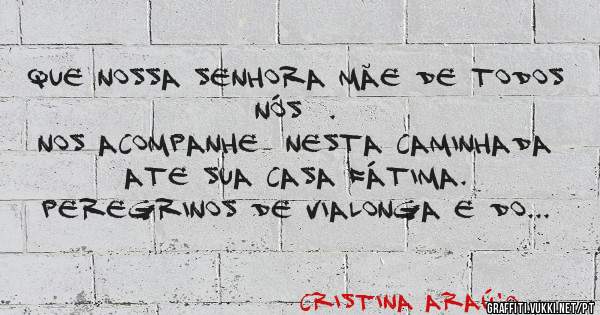 QUE NOSSA SENHORA MÃE DE TODOS
NÓS .
NOS ACOMPANHE NESTA CAMINHADA
ATE SUA CASA FÁTIMA.
PEREGRINOS DE VIALONGA E DO...
CRISTINA ARAÚJO
GRAFFITI.VUKKI.NET/PT